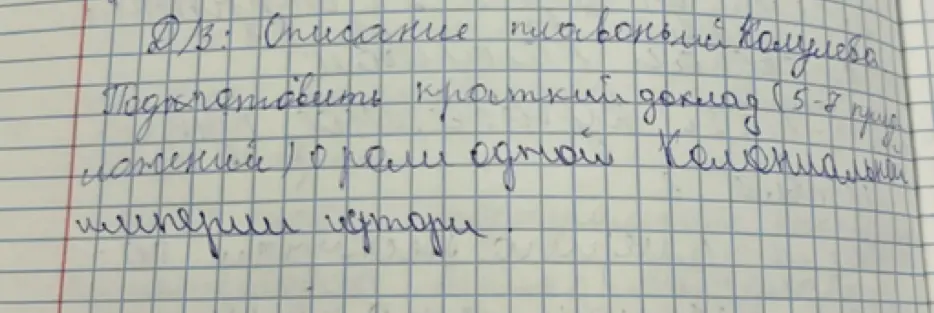 Д/З: Описание плавоный Колумба
Подготовить краткий доклад (5-7 пред
ложений) о роли одной Колониальной
империи истори.